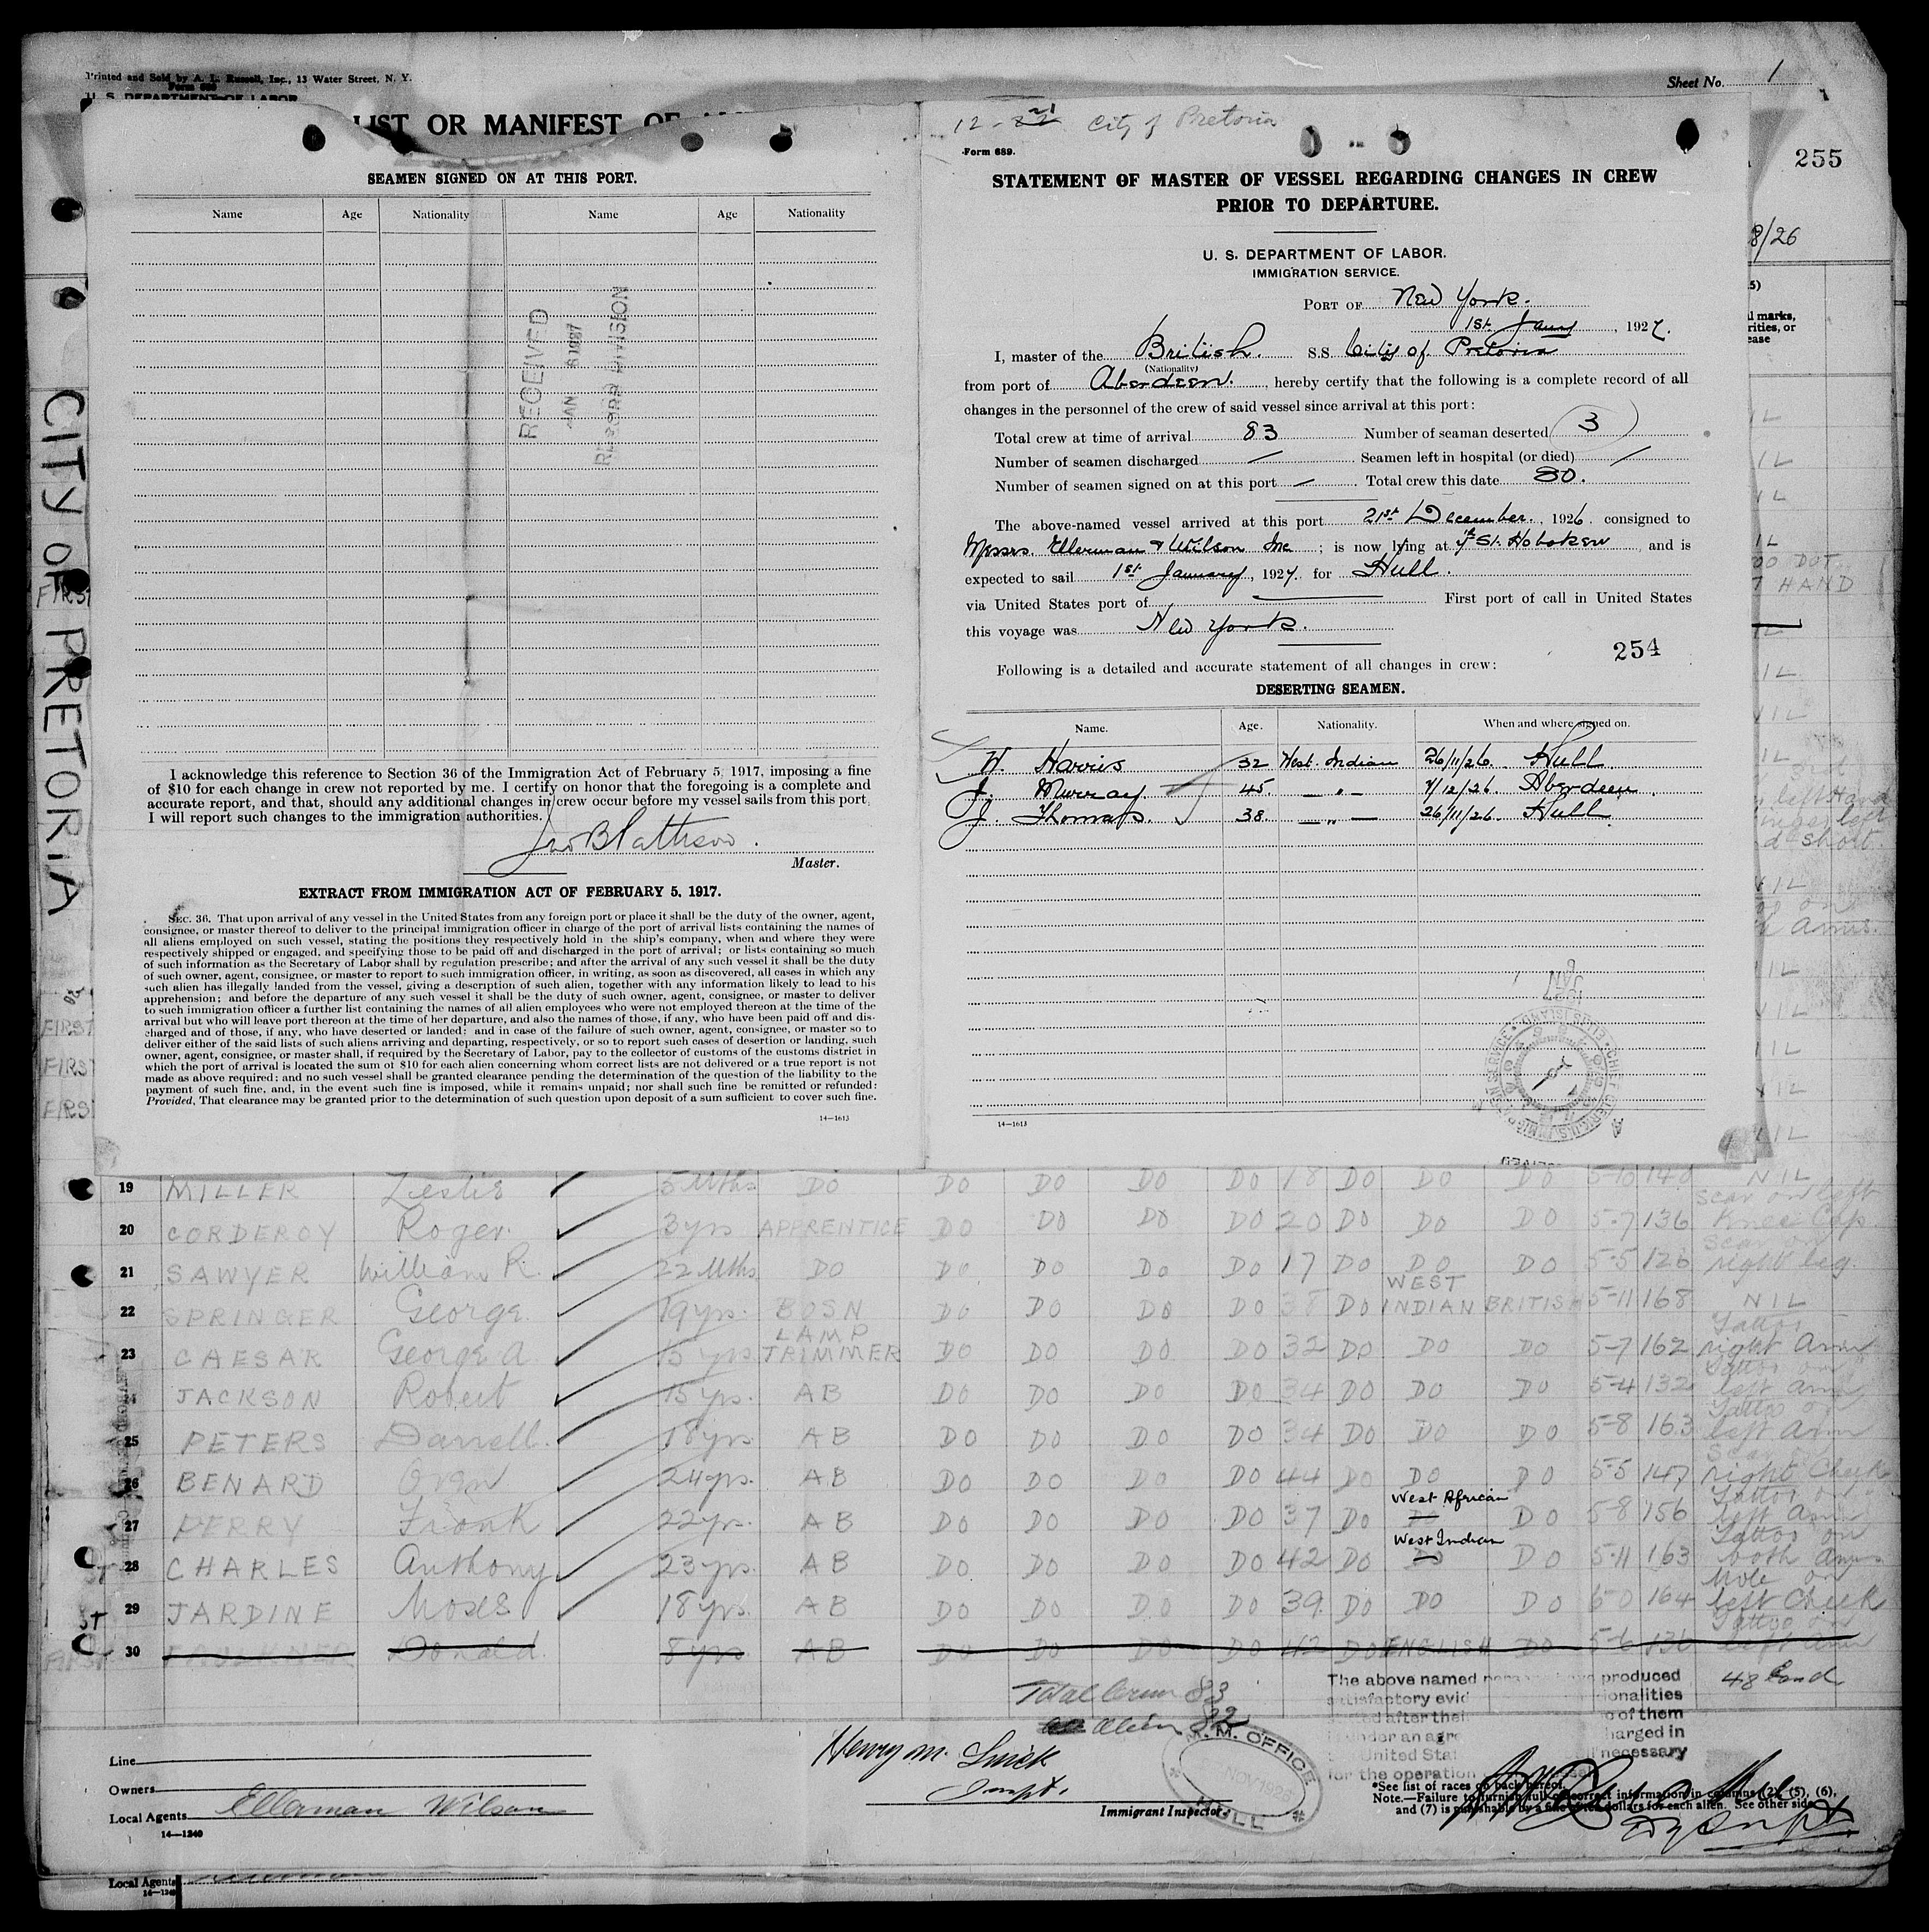 Printed and Sold by A. L. Russell, Inc., 13 Water Street, N. Y.
Form 689
U. S. DEPARTMENT OF LABOR
Sheet No. 1
LIST OR MANIFEST OF
255
8/26
CITY OF PRETORIA
SEAMEN SIGNED ON AT THIS PORT.
Name Age Nationality Name Age Nationality
RECEIVED
JAN
RECORD DIVISION
I acknowledge this reference to Section 36 of the Immigration Act of February 5, 1917, imposing a fine
of $10 for each change in crew not reported by me. I certify on honor that the foregoing is a complete and
accurate report, and that, should any additional changes in crew occur before my vessel sails from this port,
I will report such changes to the immigration authorities.
Jno B Pattison.
Master.
EXTRACT FROM IMMIGRATION ACT OF FEBRUARY 5, 1917.
SEC. 36. That upon arrival of any vessel in the United States from any foreign port or place it shall be the duty of the owner, agent,
consignee, or master thereof to deliver to the principal immigration officer in charge of the port of arrival lists containing the names of
all aliens employed on such vessel, stating the positions they respectively hold in the ship's company, when and where they were
respectively shipped or engaged, and specifying those to be paid off and discharged in the port of arrival; or lists containing so much
of such information as the Secretary of Labor shall by regulation prescribe; and after the arrival of any such vessel it shall be the duty
of such owner, agent, consignee, or master to report to such immigration officer, in writing, as soon as discovered, all cases in which any
such alien has illegally landed from the vessel, giving a description of such alien, together with any information likely to lead to his
apprehension; and before the departure of any such vessel it shall be the duty of such owner, agent, consignee, or master to deliver
to such immigration officer a further list containing the names of all alien employees who were not employed thereon at the time of the
arrival but who will leave port thereon at the time of her departure, and also the names of those, if any, who have been paid off and dis-
charged and of those, if any, who have deserted or landed; and in case of the failure of such owner, agent, consignee, or master so to
deliver either of the said lists of such aliens arriving and departing, respectively, or so to report such cases of desertion or landing, such
owner, agent, consignee, or master shall, if required by the Secretary of Labor, pay to the collector of customs of the customs district in
which the port of arrival is located the sum of $10 for each alien concerning whom correct lists are not delivered or a true report is not
made as above required; and no such vessel shall be granted clearance pending the determination of the question of the liability to the
payment of such fine, and, in the event such fine is imposed, while it remains unpaid; nor shall such fine be remitted or refunded:
Provided, That clearance may be granted prior to the determination of such question upon deposit of a sum sufficient to cover such fine.
14—1613
12-21 City of Pretoria
Form 689.
STATEMENT OF MASTER OF VESSEL REGARDING CHANGES IN CREW
PRIOR TO DEPARTURE.
U. S. DEPARTMENT OF LABOR.
IMMIGRATION SERVICE.
PORT OF New York.
1st Jany, 1927.
I, master of the British. S.S. City of Pretoria
(Nationality)
from port of Aberdeen., hereby certify that the following is a complete record of all
changes in the personnel of the crew of said vessel since arrival at this port:
Total crew at time of arrival 83 Number of seaman deserted 3
Number of seamen discharged / Seamen left in hospital (or died) /
Number of seamen signed on at this port / Total crew this date 80.
The above-named vessel arrived at this port 21st December, 1926. consigned to
Messrs. Ellerman & Wilson Inc; is now lying at 7th St. Hoboken, and is
expected to sail 1st January, 1927. for Hull.
via United States port of — First port of call in United States
this voyage was New York.
254
Following is a detailed and accurate statement of all changes in crew:
DESERTING SEAMEN.
Name. Age. Nationality. When and where signed on.
W. Harris 32 West. Indian 26/11/26. Hull.
J. Murray 45. — " — 7/12/26. Aberdeen.
J. Thomas. 38. — " — 26/11/26. Hull.
14—1613
19 MILLER Leslie 5 Mths DO DO DO DO DO 18 DO DO DO 5-10 140 NIL
20 CORDEROY Roger. 3yrs APPRENTICE DO DO DO DO 20 DO DO DO 5-7 136 Scar on left Knee Cap.
21 SAWYER William R. 22 Mths DO DO DO DO DO 17 DO DO DO 5-5 126 Scar on right leg.
22 SPRINGER George. 19yrs. BOSN DO DO DO DO 38 DO WEST INDIAN BRITISH 5-11 168 NIL
23 CAESAR George A 15 yrs LAMP TRIMMER DO DO DO DO 32 DO DO DO 5-7 162 Tattoo right Arm
24 JACKSON Robert 15yrs. AB DO DO DO DO 34 DO DO DO 5-4 132 Tattoo on left arm
25 PETERS Darrell. 18yrs AB DO DO DO DO 34 DO DO DO 5-8 163 Tattoo on left Arm
26 BENARD Oven 24yrs. AB DO DO DO DO 44 DO DO DO 5-5 147 Scar on right Cheek
27 PERRY Frank 22yr. AB DO DO DO DO 37 DO West African DO 5-8 156 Tattoo on left Arm
28 CHARLES Anthony 23yrs. AB DO DO DO DO 42 DO West Indian DO 5-11 163 Tattoo on both Arms
29 JARDINE Moses 18yrs. AB DO DO DO DO 39. DO DO DO 6-0 164 Mole on left Cheek
30 FAULKNER Donald. 8yrs AB DO DO DO DO 42 DO ENGLISH DO 5-6 136 Tattoo on left Arm
Total Crew 83
Alien 82
48 Card
The above named produced
satisfactory evid onalities
after thei of them
under an agre harged in
United Stat necessary
for the operation
Line
Owners
Local Agents Ellerman Wilson
14—1240
Henry M.
Inspt.
Immigrant Inspector
M. M. OFFICE
HULL
*See list of races on back hereof.
Note.—Failure to furnish full or correct information in columns (2), (5), (6),
and (7) is punishable by a fine of ten dollars for each alien. See other side.
Local Agents
14—1240